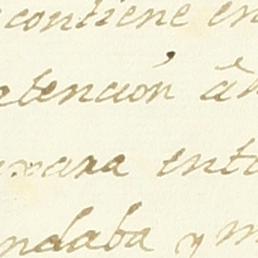 contiene en
atencion â
para ento
ndaba y m